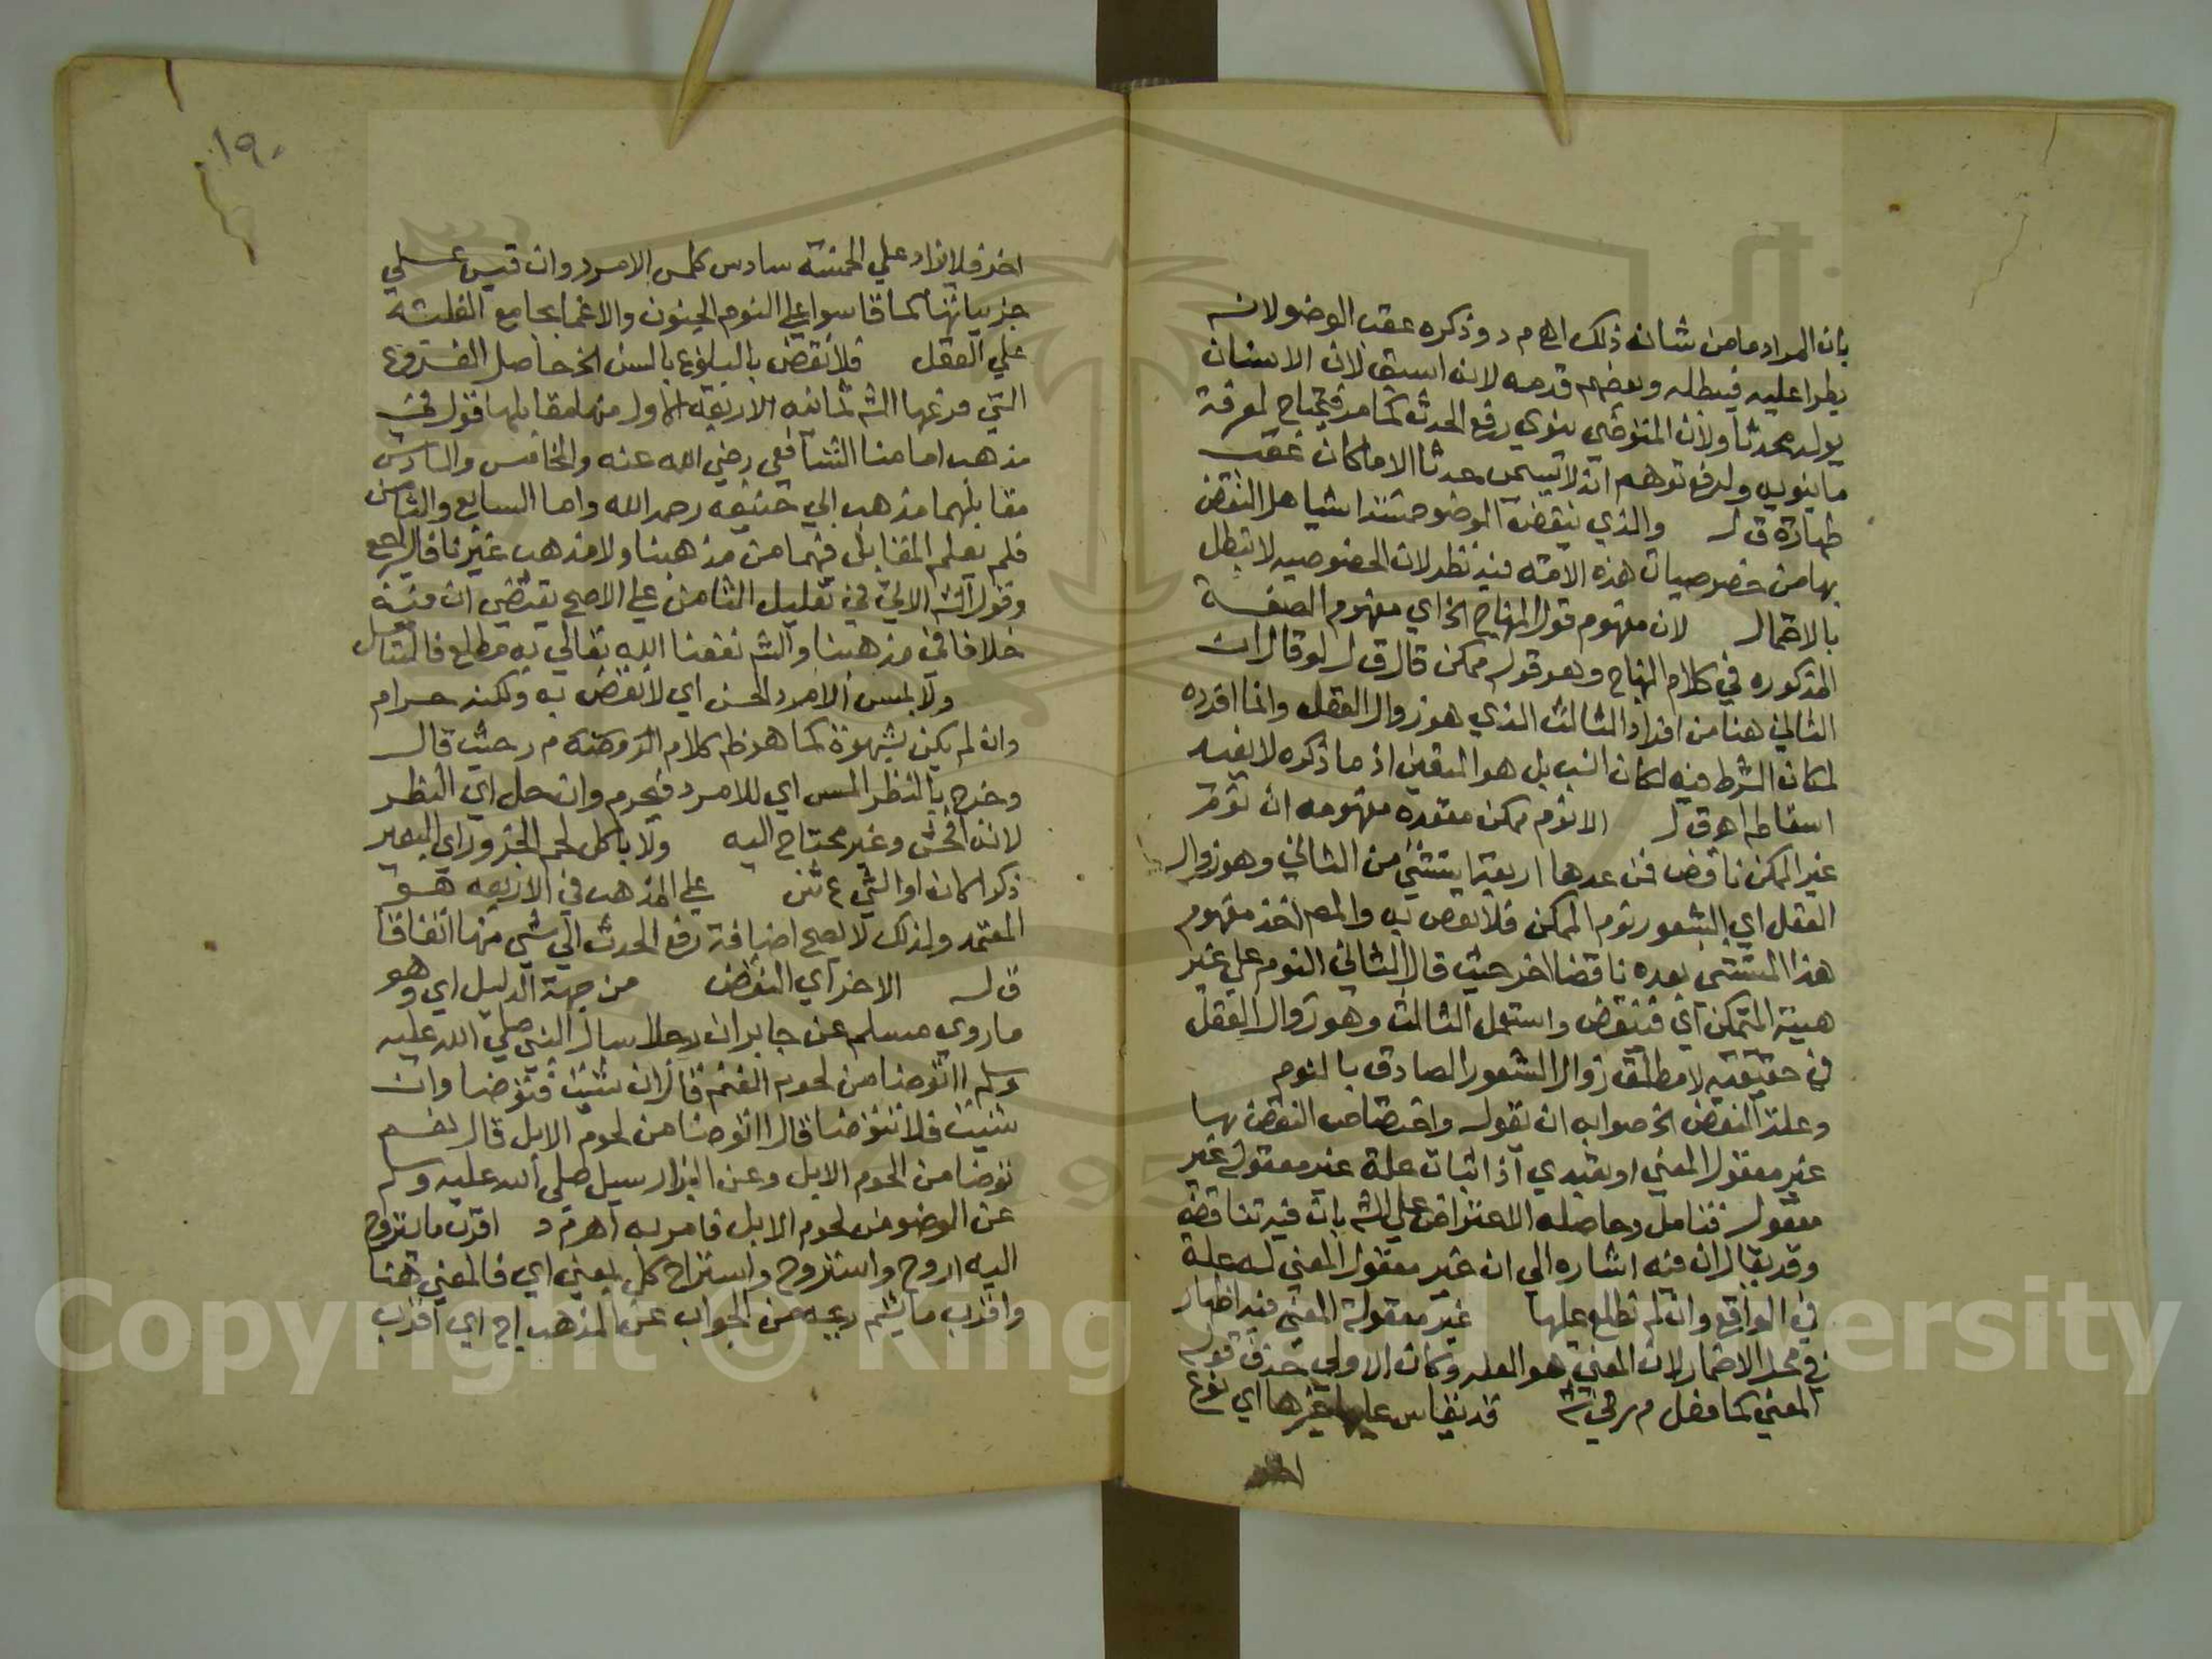 بان المراد ما من شانه ذلك اهـ م د وذكره عقب الوضو لانه
يطرا عليه فيبطله وبعضهم قدمه لانه اسبق لان الانسان
يولد محدثا ولان المتوضي ينوي رفع الحدث كما مر فيحتاج لمعرفة
ما ينويه ولدفع توهم انه لا يسمى محدثا الا ما كان عقب
طهارة ق ل والذي ينقض الوضو خمسة اشيا هل النقض
بها من خصوصيات هذه الامة فيه نظر لان الخصوصيه لا تبطل
بالاحتمال لان مفهوم قول المنهاج الخ اي مفهوم الصفة
المذكوره في كلام المنهاج وهو قوله ممكن قال ق ل لو قال ان
الثاني هنا من افراد الثالث الذي هو زوال العقل وانما افرده
لمكان الشرط فيه لكان انسب بل هو المتعين اذ ما ذكره لا يفيه
اسقاطه اهـ ق ل الا نوم ممكن مقعده مفهومه ان نوم
غير الممكن ناقض فمن عدها اربعة يستثني من الثاني وهو زوال
العقل اي الشعور نوم الممكن فلا نقض به والمص اخذ مفهوم
هذا المستثنى بعده ناقضا اخر حيث قال الثاني النوم على غير
هيئة المتمكن اي فينقض واستعمل الثالث وهو زوال العقل
في حقيقته لا مطلق زوال الشعور الصادق بالنوم
وعلة النقض الخ صوابه ان تقول واختصاص النقض بها
غير معقول المعنى او تعبدي اذ اثبات علة غير معقولة غير
معقول فتامل وحاصله الاعتراض على الش بان فيه تناقضا
وقد يقال ان فيه اشاره الى ان غير معقول المعنى له علة
في الواقع وان لم نطلع عليها غير معقولة المعنى فيه اظهار
في محل الاضمار لان المعنى هو العله وكان الاولى حذف قوله
المعنى كما فعل م ر في ش فلا يقاس عليها غيرها اي نوع
اخر
١٩٠
اخر فلا يزاد على الخمسة سادس كلمس الامرد وان قيس على
جزيياتها كما قاسوا على النوم الجنون والاغما بجامع الغلبة
على العقل فلا نقض بالبلوغ بالسن الخ حاصل الفروع
التي فرعها الش ثمانيه الاربعة الاول منها مقابلها قول في
مذهب امامنا الشافعي رضي الله عنه والخامس والسادس
مقابلهما مذهب ابي حنيفه رحمه الله واما السابع والثامن
فلم يعلم المقابل فيهما من مذهبنا ولا مذهب غيرنا فاليراجع
وقول الش الاتي في تعليل الثامن على الاصح يقتضي ان فيه
خلافا في مذهبنا والش نفعنا الله تعالى به مطلع فاليتامل
ولا بلمس الامرد الحسن اي لا نقض به ولكنه حرام
وان لم يكن بشهوة كما هو ظ كلام الروضة م ر حيث قال
وخرج بالنظر المس اي للامرد فيحرم وان حل اي النظر
لانه افحش وغير محتاج اليه ولا باكل لحم الجزور اي البعير
ذكرا كان او انثى ع ش على المذهب في الاربعه هو
المعتمد ولذلك لا يصح اضافة رفع الحدث الى شي منها اتفاقا
ق ل الاخر اي النقض من جهة الدليل اي وهو
ما روى مسلم عن جابر ان رجلا سال النبي صلى الله عليه
وسلم ااتوضا من لحوم الغنم قال ان شئت فتوضا وان
شئت فلا تتوضا قال ااتوضا من لحوم الابل قال نعم
توضا من لحوم الابل وعن البزار سيل صلى الله عليه وسلم
عن الوضو من لحوم الابل فامر به اهـ م د اقرب ما يستروح
اليه اروح واستروح واستراح كل بمعنى اي فالمعنى هنا
واقرب ما يشم ريحه من الجواب عن المذهب اج اي اقرب